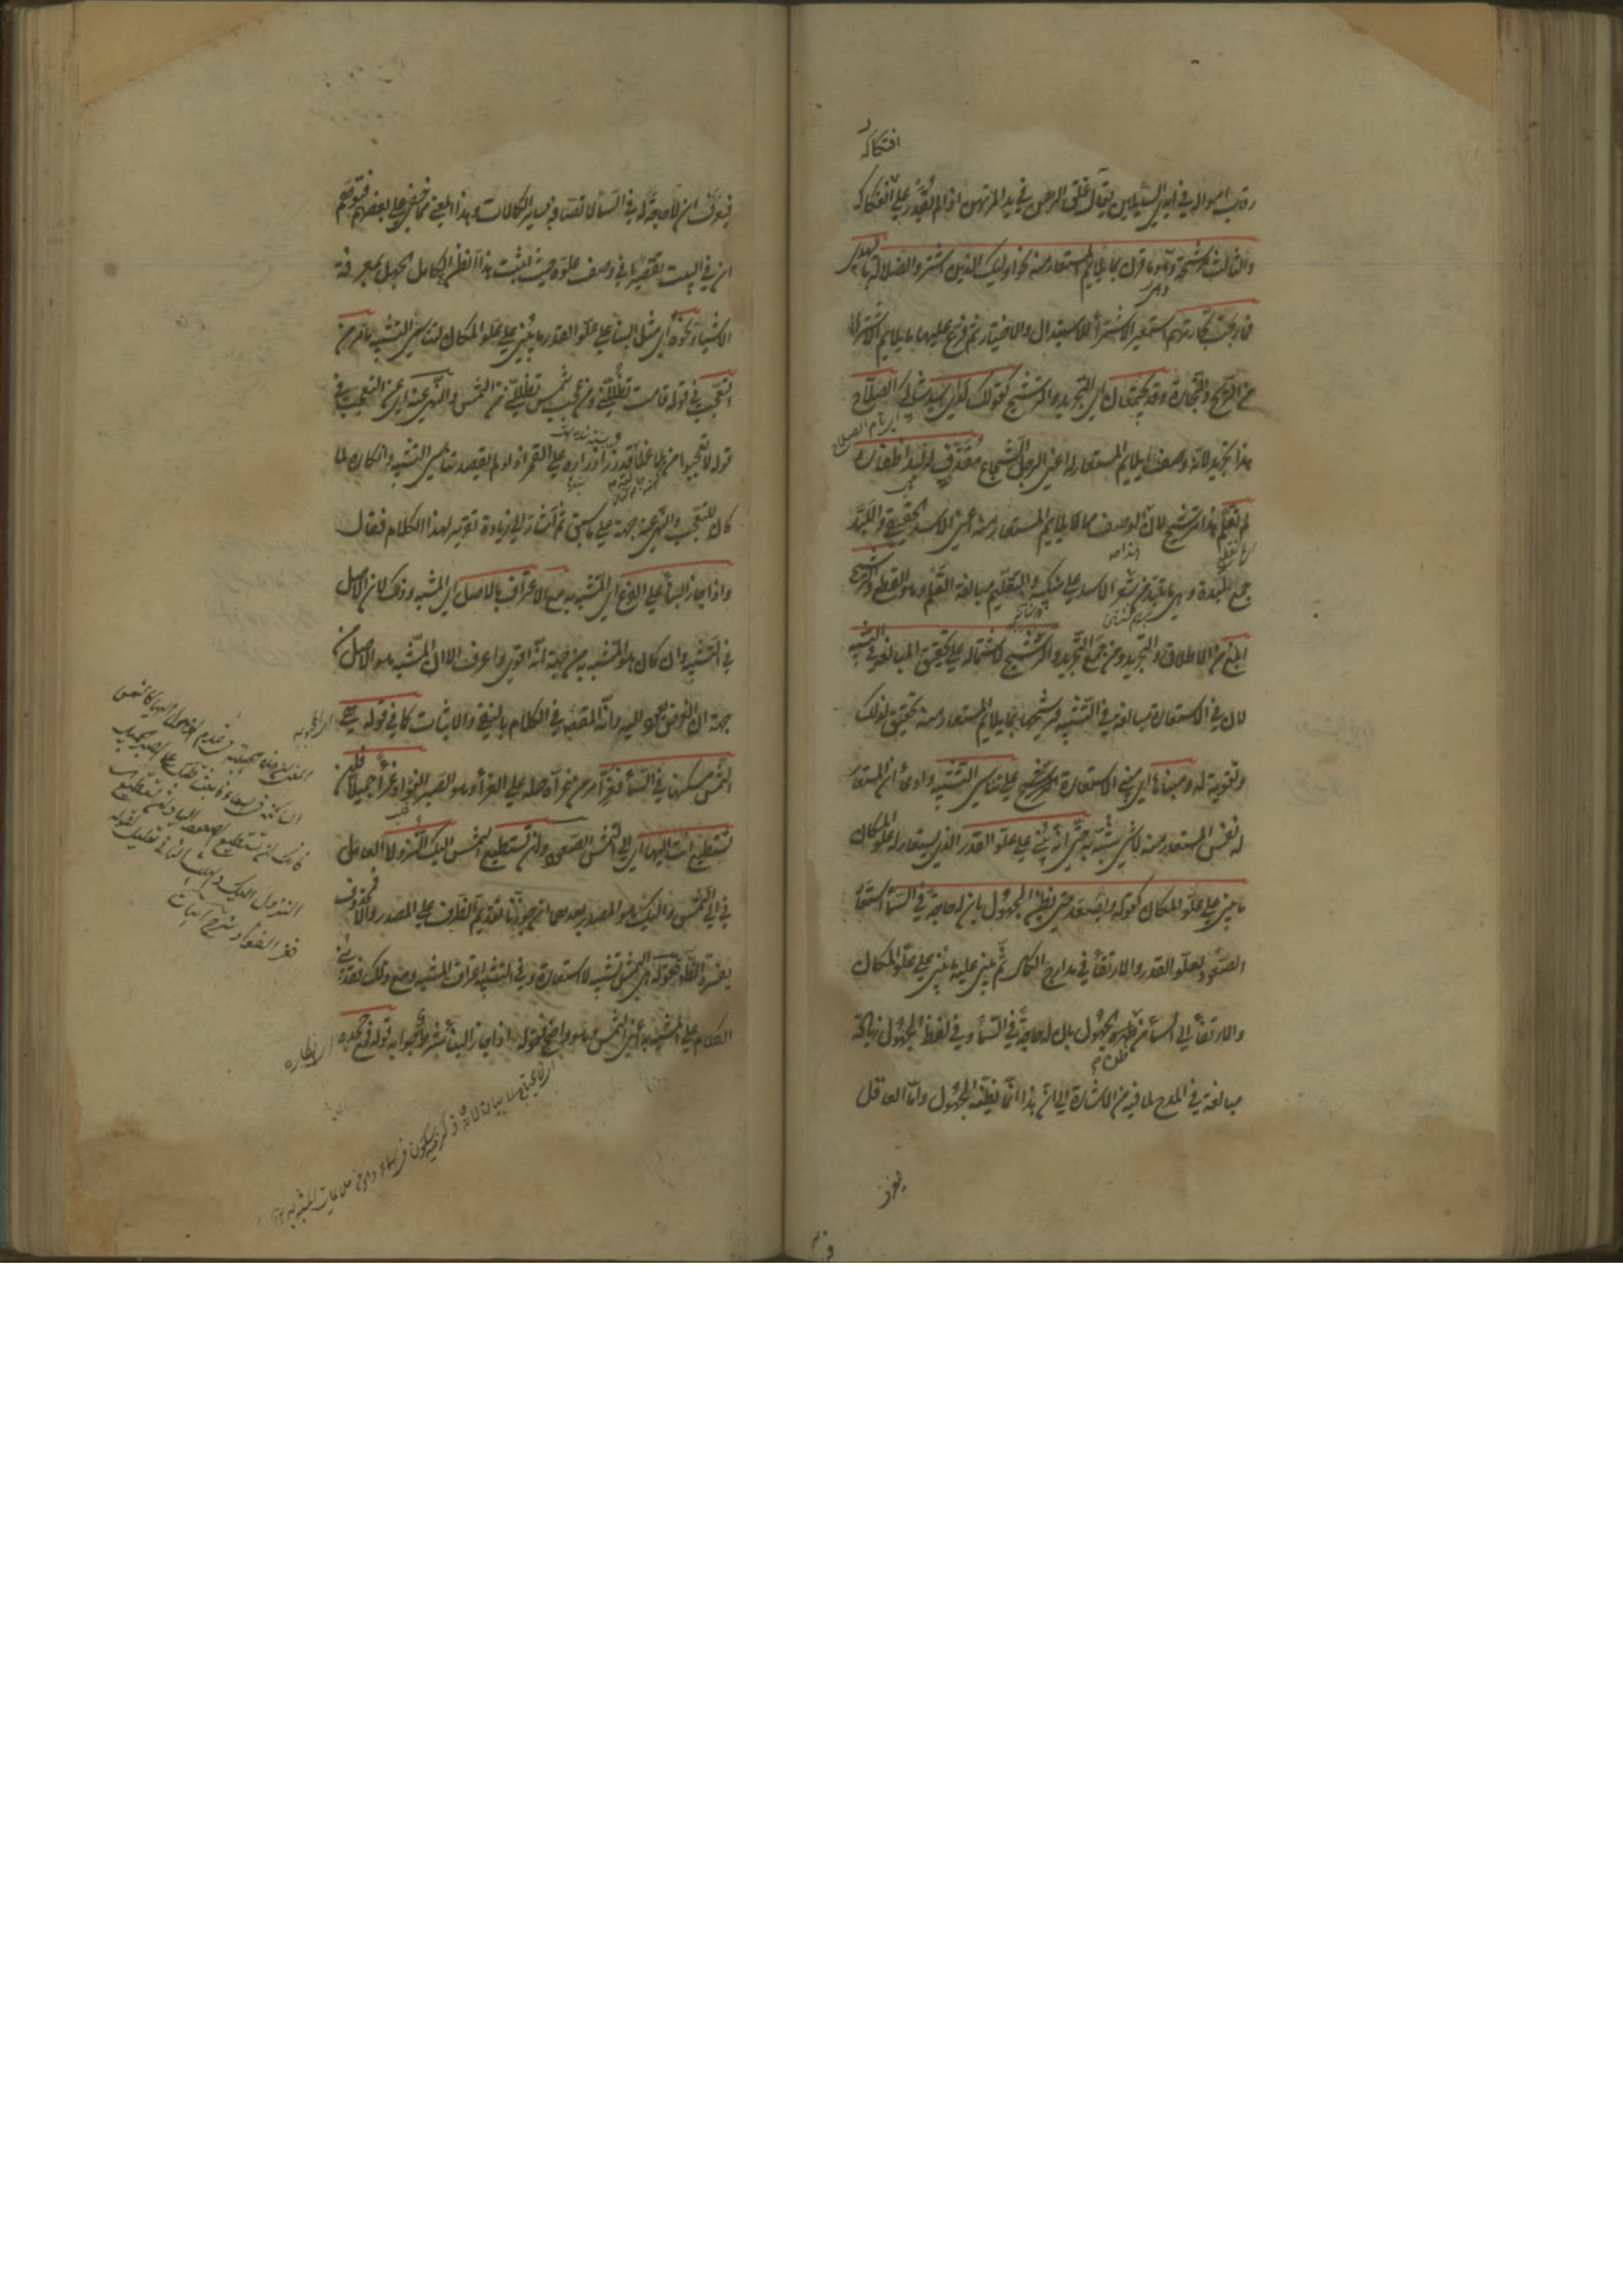 افتكاكه
رقاب امواله في ايدي السائلين يقال غلق الرهن في يد المرتهن اذا لم يقدر على انفكاكه
والثالث مرشحة وهو ما قرن بما يلايم المستعار منه نحو اولئك الذين اشتروا الضلالة بالهدى
فما ربحت تجارتهم استعير الاشتراء للاستبدال والاختيار ثم فرع عليها ما يلايم الاشتراء
من الربح والتجارة وقد يجتمعان اي التجريد والترشيح كقوله لدى اسد شاكي السلاح
هذا تجريد لانه وصف بما يلايم المستعار له اعني الرجل الشجاع مقذف له لبد اظفاره
لم تقلم هذا ترشيح لان الوصف مما يلايم المستعار منه اعني الاسد الحقيقي واللبد
جمع لبدة وهي ما تلبد من شعر الاسد على منكبيه والتقليم مبالغة القلم وهو القطع والترشيح
ابلغ من الاطلاق والتجريد ومن جمع التجريد والترشيح لاشتماله على تحقيق المبالغة في التشبيه
لان في الاستعارة مبالغة في التشبيه فترشيحها بما يلايم المستعار منه تحقيق لذلك
وتقوية له ومبناه اي مبنى الاستعارة الترشيح على تناسي التشبيه وادعاء ان المستعار
له نفس المستعار منه لا شيء شبيه به حتى انه يبنى على علو القدر الذي يستعار له علو المكان
ما يبنى على علو المكان كقوله ويصعد حتى يظن الجهول بان له حاجة في السماء استعار
الصعود لعلو القدر والارتقاء في مدارج الكمال ثم بنى عليه ما يبنى على علو المكان
والارتقاء الى السماء من ظن الجهول بان له حاجة في السماء وفي لفظ الجهول زيادة
مبالغة في المدح لما فيه من الاشارة الى ان هذا انما يظنه الجهول واما العاقل
فيعرف
فيعرف ان لا حاجة له في السماء لاتصافه بسائر الكمالات وهذا المعنى مما خفي على بعضهم فتوهم
ان في البيت تقصيرا في وصف علوه حيث اثبت هذا الظن للكامل الجهل بمعرفة
الاشياء ونحوه اي مثل البناء على علو القدر ما يبنى على علو المكان لتناسي التشبيه ما مر من
التعجب في قوله قامت تظللني ومن عجب شمس تظللني من الشمس والنهي عنه اي عن التعجب في
قوله لا تعجبوا من بلى غلالته قد زر ازراره على القمر اذ لو لم يقصد تناسي التشبيه وانكاره لما
كان للتعجب والنهي عنه جهة على ما سبق ثم اشار الى زيادة تقرير لهذا الكلام فقال
واذا جاز البناء على الفرع اي المشبه به مع الاعتراف بالاصل اي المشبه وذلك لان الاصل
في التشبيه وان كان هو المشبه به من جهة انه اقوى واعرف الا ان المشبه هو الاصل من
جهة ان الغرض يعود اليه وانه المقصود في الكلام بالنفي والاثبات كما في قوله هي
الشمس مسكنها في السماء فعز امر من عزاه حمله على العزاء وهو الصبر الفؤاد عزاء جميلا فلن
تستطيع انت اليها اي الى الشمس الصعود ولن تستطيع الشمس اليك النزولا العامل
في الى الشمس واليك هو المصدر بعدهما ان جوزنا تقديم الظرف على المصدر والا فمحذوف
يفسره الظاهر فقوله هي الشمس تشبيه لا استعارة وفي التشبيه اعتراف بالمشبه ومع ذلك فقد بنى
الكلام على المشبه به اعني الشمس وهو واضح فقوله واذا جاز البناء شرط جوابه قوله فمع جحده